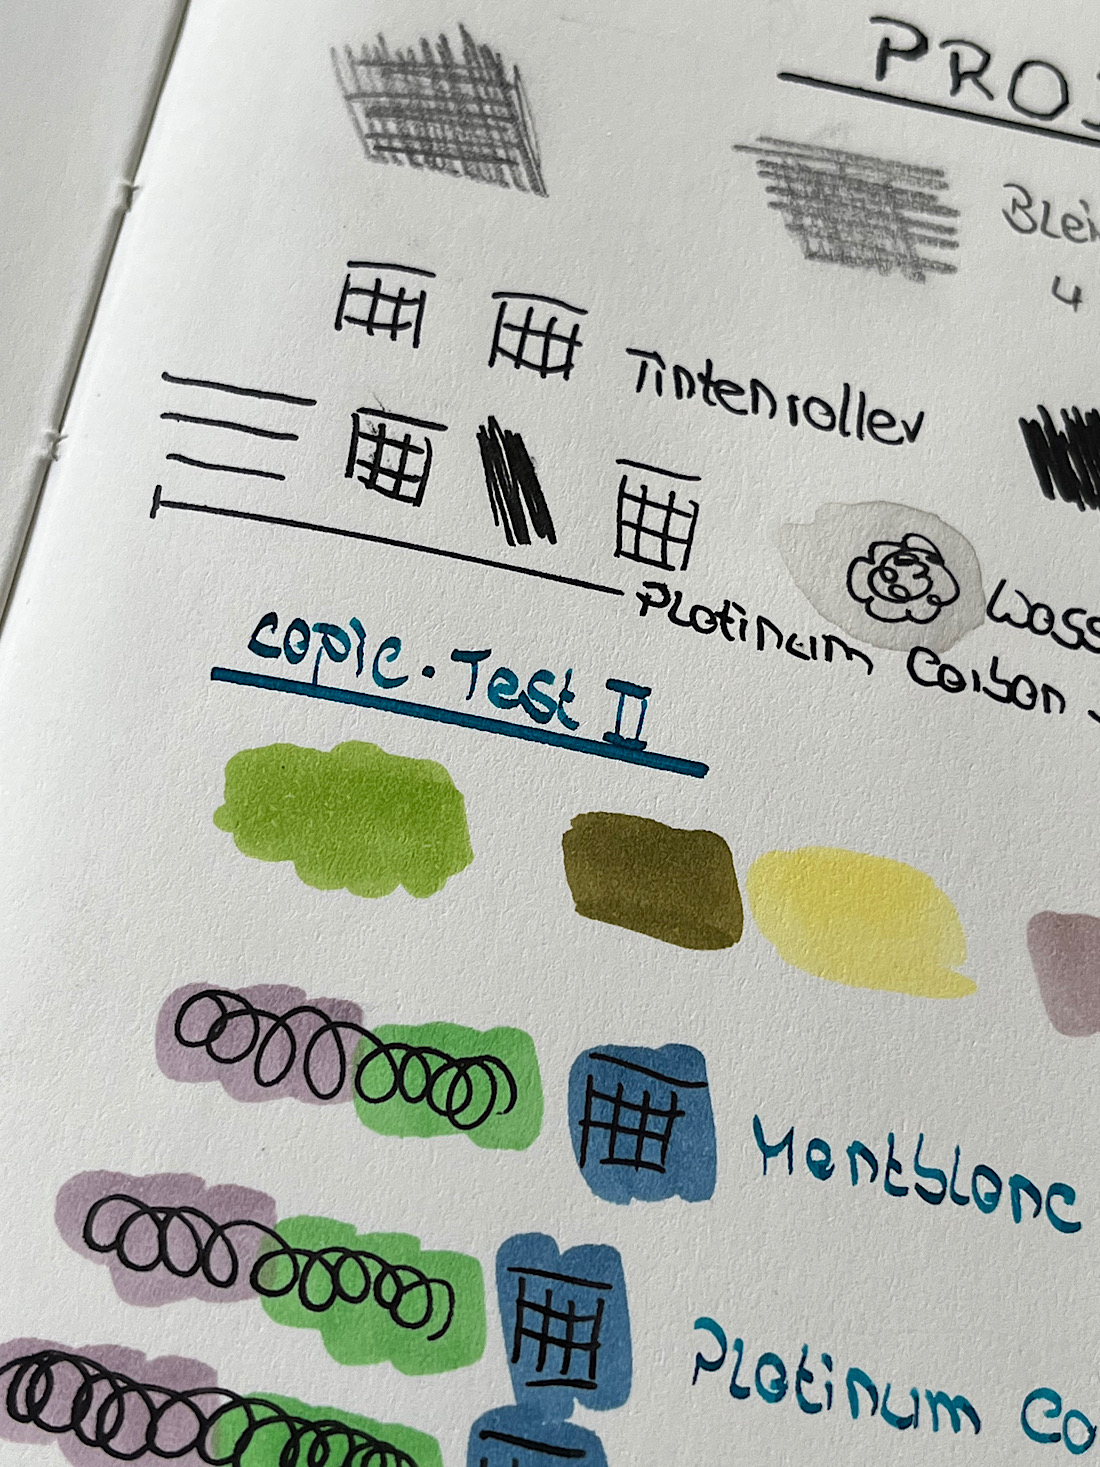 PRO
Blei
4
Tintenroller
Wass
Platinum Carbon
Copic-Test II
Montblanc
Platinum Ca